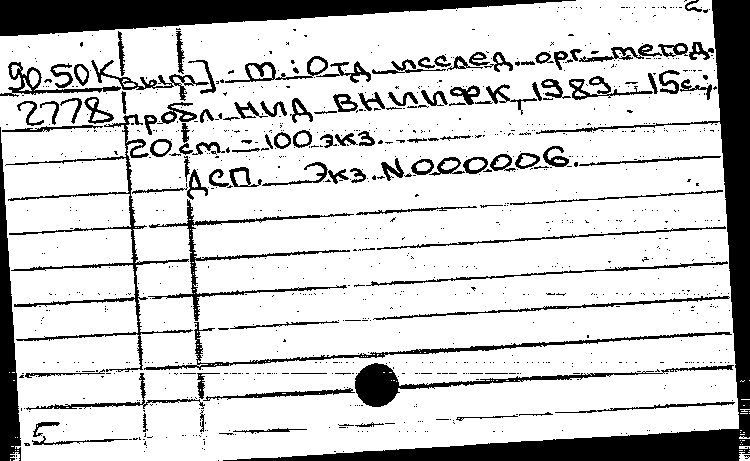 2.
90-50К вым]. - М.: Отд. исслед. орг.-метод.
2778 пробл. НИД ВНИИФК, 1989. - 15 с.;
20 см. - 100 экз.
ДСП. Экз. N000006.
5